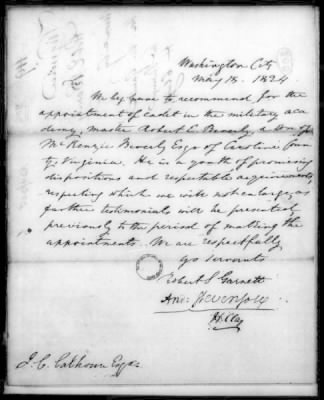 Washington City
May 18. 1824.
We beg leave to recommend for the
appointment of cadet in the military aca
demy, master Robert E. Beverly, a son of
McKenzie Beverly Esqr of Caroline Coun
ty, Virginia. He is a youth of promising
dispositions and respectable acquirements,
respecting which we will not enlarge, as
further testimonials will be presented
previously to the period of making the
appointments. We are respectfully
yo servants
Robert S Garnett
And: Stevenson
H. Clay
J. C. Calhoun Esqr